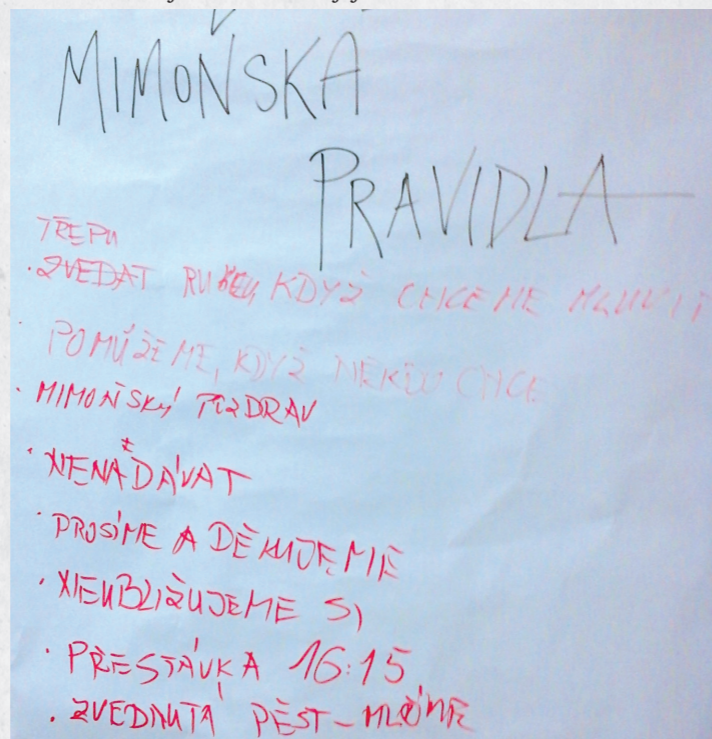 MIMOŇSKÁ
PRAVIDLA
TŘEPU
· ZVEDAT RUKU, KDYŽ CHCEME MLUVIT
· POMŮŽEME, KDYŽ NĚKDO CHCE
· MIMOŇSKÝ POZDRAV
· NENADÁVAT
· PROSÍME A DĚKUJEME
· NEUBLIŽUJEME SI
· PŘESTÁVKA 16:15
· ZVEDNUTÁ PĚST - MLČÍME